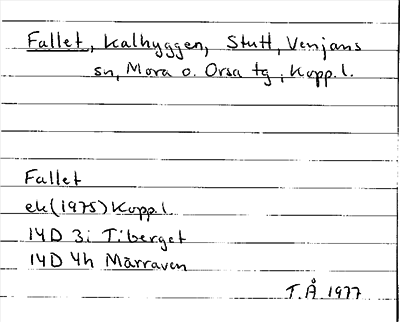 Fallet, Kalhyggen, Stutt, Venjans
sn, Mora o. Orsa tg, Kopp.l.
Fallet
ek(1975) Kopp.l
14D 3i Tiberget
14D 4h Märraven
T.Å 1977